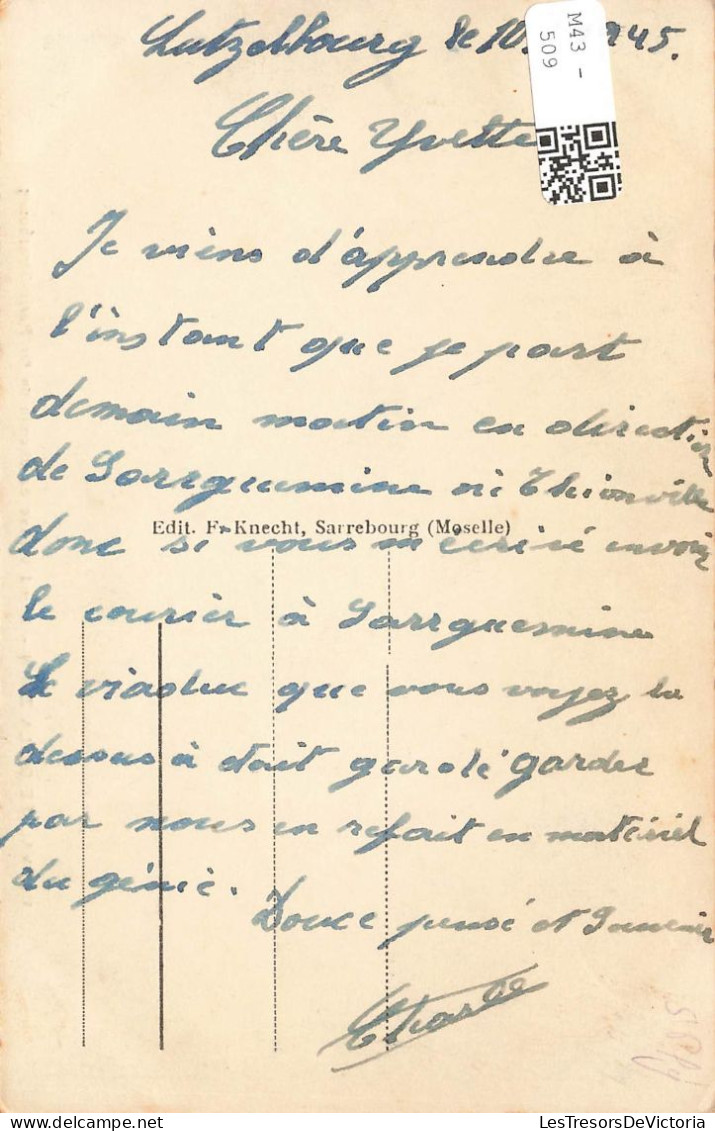 Lutzelbourg le 10 945.
M43 - 509
Chère Yvette
Je viens d'apprendre à
l'instant que je part
demain matin en direction
de Sarrguemine ou Thionville
Edit. F. Knecht, Sarrebourg (Moselle)
donc si vous m'écrivé envoir
le courier à Sarrguesmine
Le viaduc que vous voyez la
dessus à était garder
par nous en refait en matériel
du génie.
Douce pensé et Souvenir
Charle
LesTresorsDeVictoria.delcampe.net